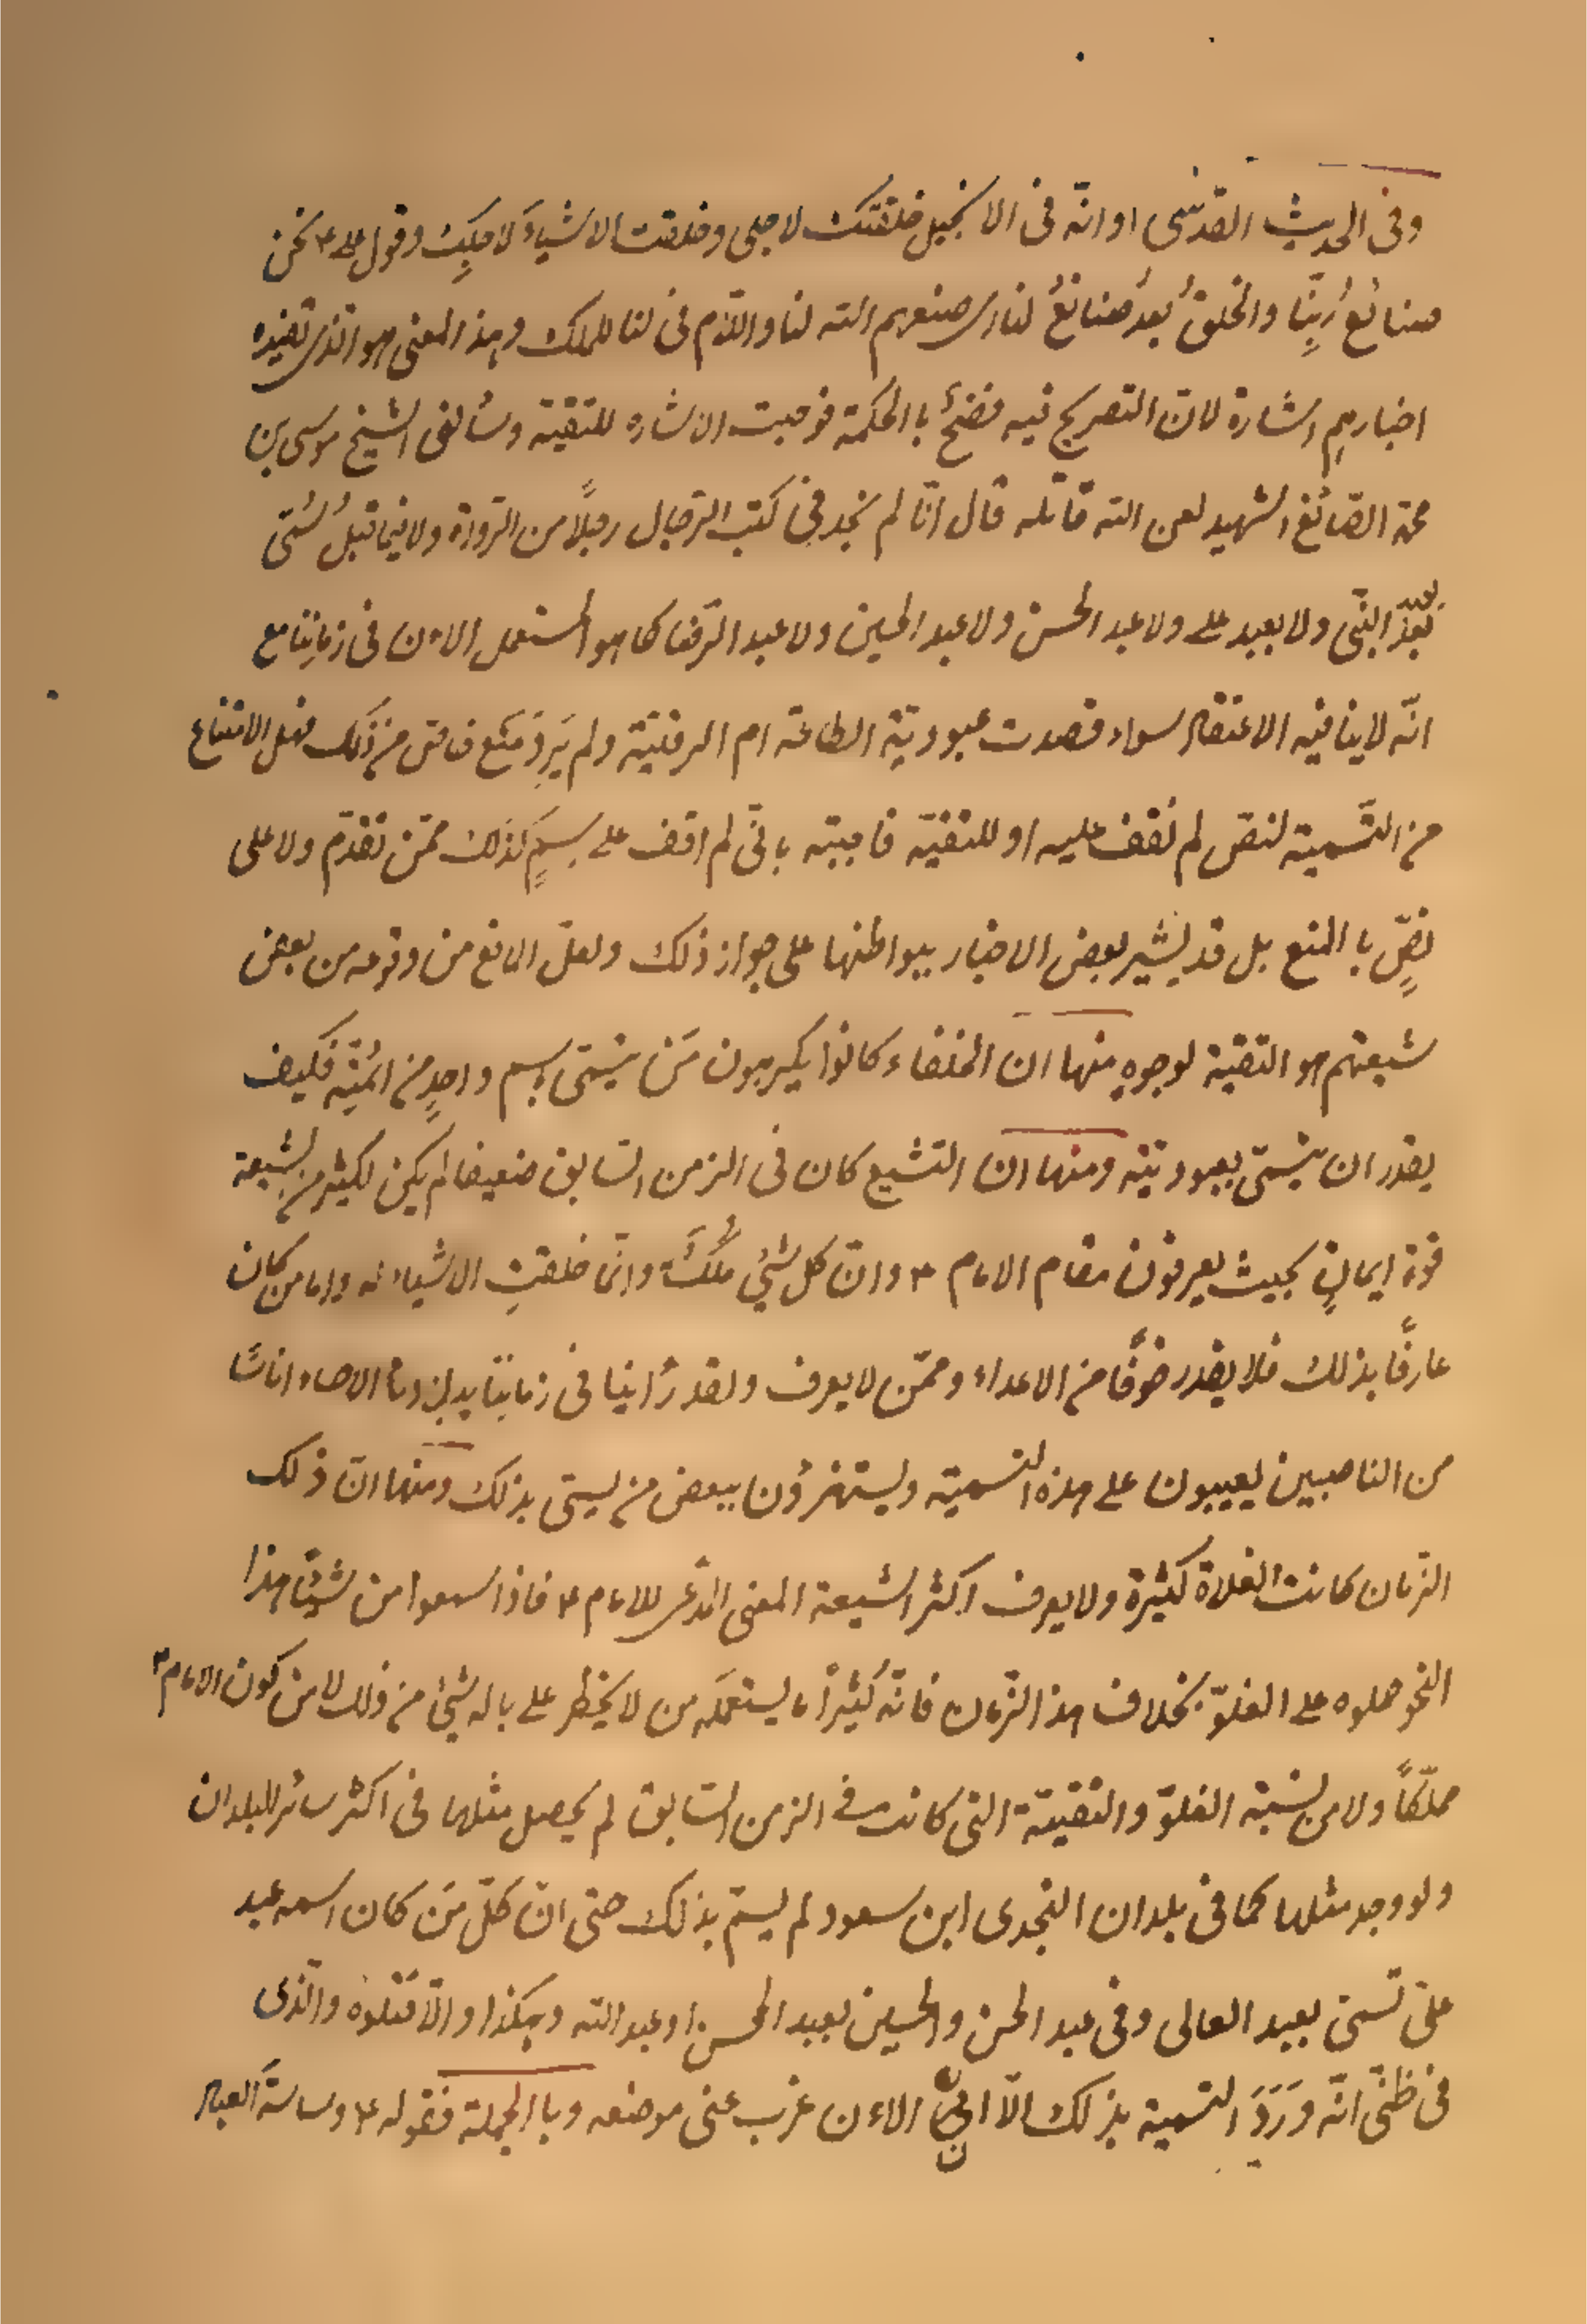 وفى الحديث القدسى او انّه فى الانجيل خلقتك لاجلى وخلقت الاشياءَ لاجلِكَ وقول على ع نحن
صنائعُ رُبِّنا والخلقُ بعدُ صنائعُ لنا اى صنعهم الله لنا واللّام فى لنا للملك وهذا المعنى هو الّذى تفيده
اخبارهم اشارة لانّ التصريح فيه مضحٌّ باالحكمة فوجبت الاشاره للتقيّة وسألنى الشيخ موسى بن
محمّد الصّائغ الشهيد لعن الله قاتله قال انّا لم نجد فى كتب الرّجال رجلاً من الرّواة ولا فيما قبلُ سُمّى
بعبد النبّى ولا بعبد على ولا عبد الحسن ولا عبد الحسين ولا عبد الرّضا كما هو المستعمل الاءن فى زماننا مع
انّه لا ينافيه الاعتقاد سواء قصدت عبوديّة الطاعة ام الرقيّة ولم يَرِدْ مَنْع خاصّ من ذلك فهل الامتناع
من التّسمية لنقص لم نقف عليه او للتقيّة فاجبته بانّى لم اقف على اسمٍ كذلك ممّن تقدّم ولا على
نصٍّ باالمنع بل قد يشير بعض الاخبار ببواطنها على جواز ذلك ولعلّ المانع من وقوعه من بعض
شيعتهم هو التقيّة لوجوهٍ منها ان الخلفاء كانوا يكرهون مَن يتسمّى باسم واحدٍ من ائمّيّة فكيف
يقدر ان يتسمّى بعبوديّته ومنها ان التشيع كان فى الزمن السّابق ضعيفا لم يكن لكثير من الشيعة
قوة ايمانٍ بحيث يعرفون مقام الامام ع وانّ كل شئ ملكُهُ وانّما خلقتِ الاشياء له وامّا من كان
عارفًا بذلك فلا يقدر خوفًا من الاعداء وممّن لا يعرف ولقد رُأينا فى زماننا ببلادنا الاحساء اناسًا
من الناصبين يعيبون على هذه التسمية ويستهزؤن ببعض من يسمّى بذلك ومنها انّ ذلك
الزمان كانت الغلاة كثيرة ولا يعرف اكثر الشيعة المعنى المدّعى للامام ع فاذا سمعوا من شيئًا هذا
النحو حملوه على الغلوّ بخلاف هذا الزّمان فانّه كُثيراً ما يستعمله من لا يخطر على باله شئ من ذلك لا من كون الامام ع
مملّكاً ولا من نسبة الغلوّ والتقيّة التى كانت فى الزمن السّابق لم يحصل مثلها فى اكثر سائر البلدان
ولو وجد مثلها كما فى بلدان النجدى ابن سعود لم يسمّ بذلك حتى انّ كلّ مَن كان اسمه عبد
علىّ تسمّى بعبد العالى وفى عبد الحسن والحسين بعبد المحسن او عبد الله وهكذا والّا قتلوه والّذى
فى ظنّى انّه وَرَدَ التسمية بذلك الّا انّى الاءن غرب عنى موضعه وباالجملة فقوله ع وساسةَ العباد